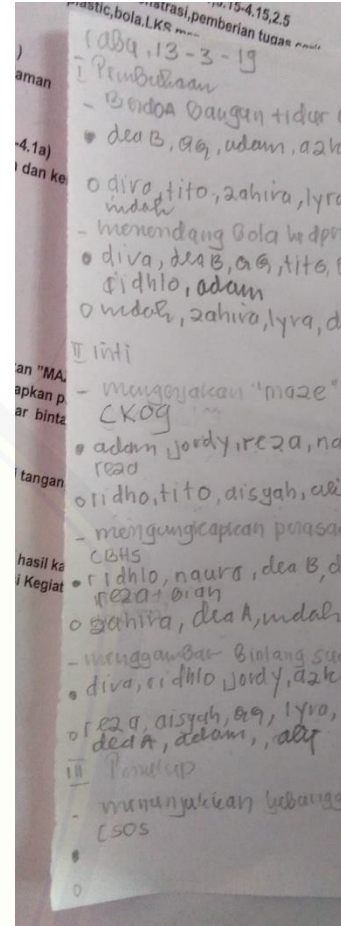 strasi,pemberian tugas
plastic,bola.LKS
)
aman
-4.1a)
dan ke
an "MA
apkan p
ar binta
tangan
hasil ka
i Kegiat
rabu, 13-3-19
I Pembukaan
- Berdoa bangun tidur
• dea B, adam, azk
o diva, tito, zahira, lyra
indah
- menendang Bola ke dpn
• diva, dea B, tito,
ridhlo, adam
o indah, zahira, lyra, d
II inti
- mengerjakan "maze"
CKOG
• adam Jordy, reza, na
o ridho, tito, aisyah,
- mengungkapkan perasa
CBHS
• ridhlo, naura, dea B, d
reza + bian
o zahira, dea A, indah
- menggambar Bintang
• diva, ridhlo Jordy, azk
o reza, aisyah, lyra,
dea A, adam,
III Penutup
- menunjukkan kebangg
CSOS
•
o